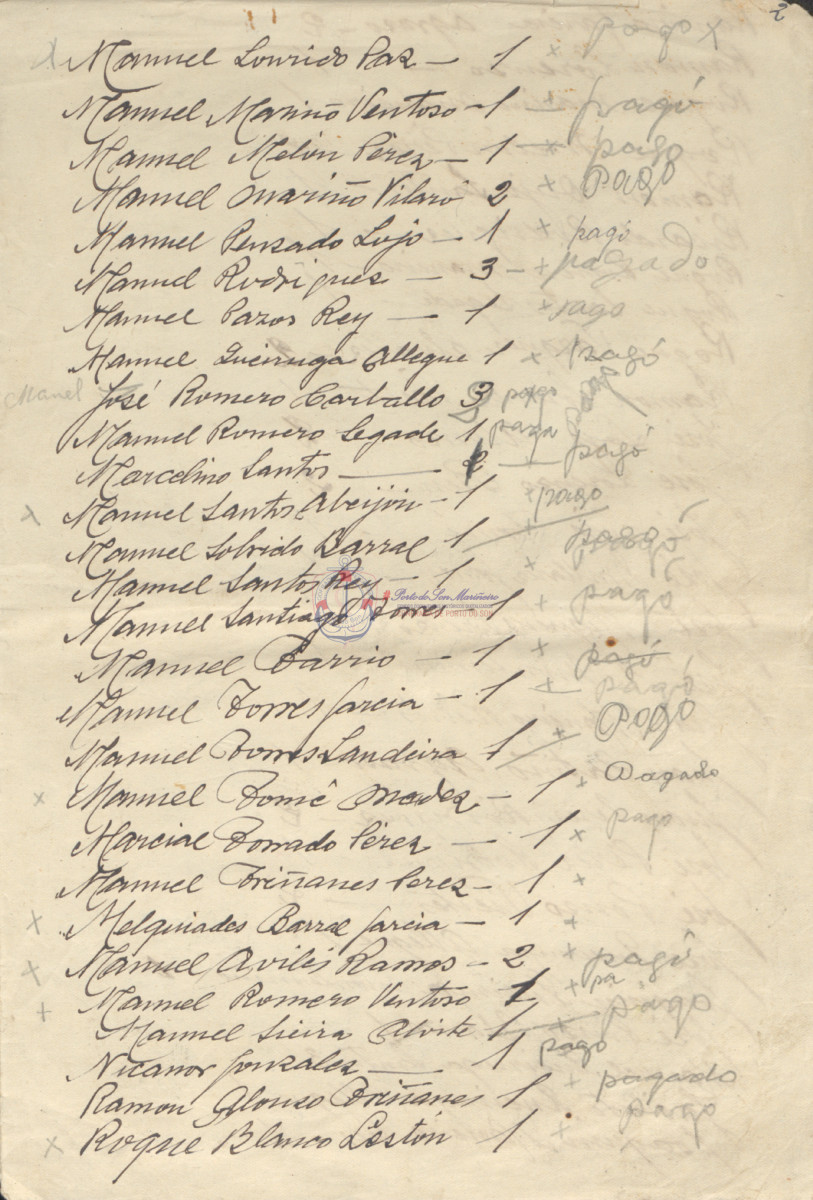 2
Manuel Lourido Paz — 1 x pago x
Manuel Mariño Ventoso - 1 — pagó
Manuel Melón Pérez — 1 — x pago
Manuel Mariño Vilaró 2 x pago
Manuel Penzado Lojo — 1 x pagó
Manuel Rodrigues — 3 - + pagado
Manuel Pazos Rey — 1 x pago
Manuel Queiruga Allegue 1 x pagó
Manuel José Romero Carballo 3 pago
Manuel Romero Legade 1 paga
Marcelino Santos — 2 — pagó
x Manuel Santos Abeijón - 1 pago
Manuel Sobrido Barral 1 pagó
Manuel Santos Rey - 1 x pagó
Porto do Son Mariñeiro
Manuel Santiago Torres - 1 +
Manuel Barrio — 1 x pagó
Manuel Torres García — 1 + pagó
Manuel Torres Landeira 1 + Pago
x Manuel Tomé - 1 + Pagado
Marcial Torrado Pérez — 1 x pago
Manuel Triñanes Perez - 1 +
x Melquiades Barral García — 1 +
x Manuel Avilés Ramos - 2 x pagó
+ Manuel Romero Ventoso 1 + pa
Manuel Sieira Alvite 1 — + pago
Nicanor Gonzalez — 1 pago
Ramon Alonso Triñanes 1 + pagado
pago
x Roque Blanco Lestón 1 +